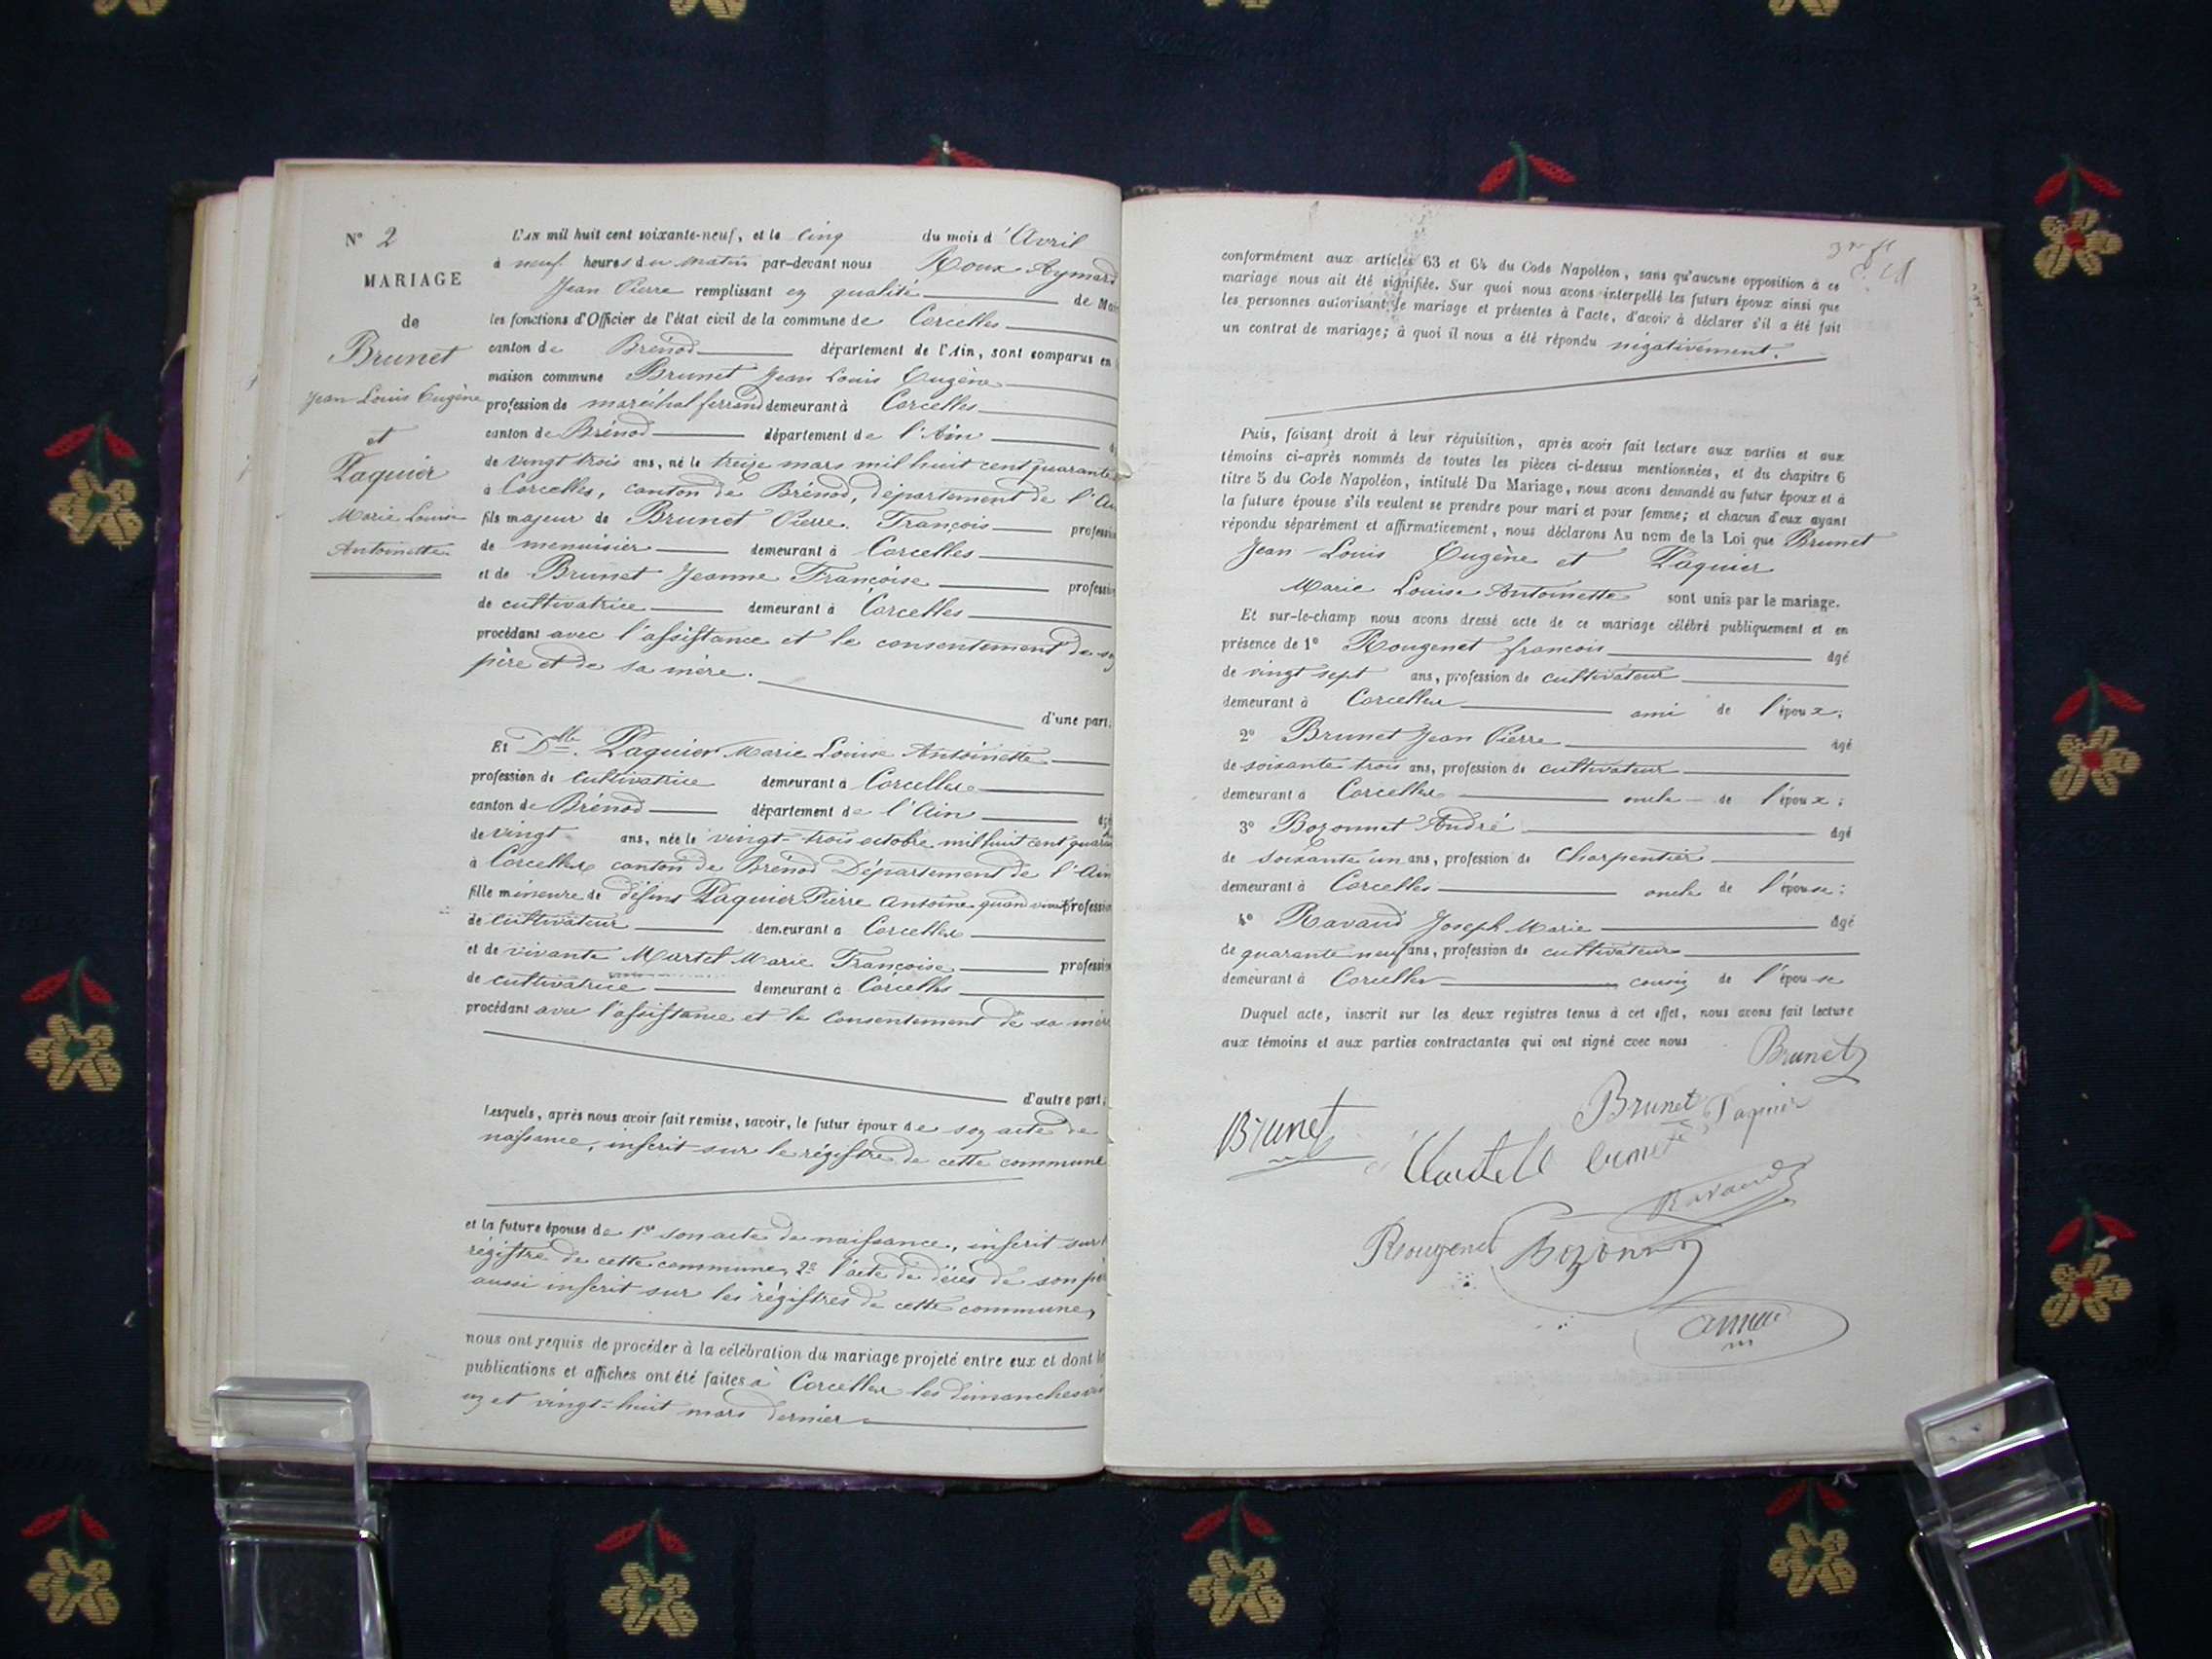 N° 2
MARIAGE
de
Brunet
Jean Louis Eugène
et
Paquier
Marie Louise
Antoinette
L'AN mil huit cent soixante-neuf, et le cinq du mois d'Avril
à neuf heures du matin par-devant nous Roux Aymard
Jean Pierre remplissant en qualité de Mai
les fonctions d'Officier de l'état civil de la commune de Corcelles
canton de Brénod département de l'Ain, sont comparus en
maison commune Brunet Jean Louis Eugène
profession de maréchal ferrand demeurant à Corcelles
canton de Brénod département de l'Ain
de vingt trois ans, né le treize mars mil huit cent quarante
à Corcelles, canton de Brénod, département de l'Ai
fils majeur de Brunet Pierre François profession
de menuisier demeurant à Corcelles
et de Brunet Jeanne Françoise profession
de cultivatrice demeurant à Corcelles
procédant avec l'assistance et le consentement de son
père et de sa mère.
d'une part;
Et Dlle. Paquier Marie Louise Antoinette
profession de cultivatrice demeurant à Corcelles
canton de Brénod département de l'Ain agé
de vingt ans, née le vingt-trois octobre mil huit cent quaran
à Corcelles canton de Brénod Département de l'Ain
fille mineure de défunt Paquier Pierre Antoine quand vivait profession
de cultivateur demeurant à Corcelles
et de vivante Martel Marie Françoise profession
de cultivatrice demeurant à Corcelles
procédant avec l'assistance et le consentement de sa mère
d'autre part;
Lesquels, après nous avoir fait remise, savoir, le futur époux de son acte de
naissance, inscrit sur le régistre de cette commune
et la future épouse de 1° son acte de naissance, inscrit sur l
régistre de cette commune, 2° l'acte de décès de son pè
aussi inscrit sur les régistres de cette commune,
nous ont requis de procéder à la célébration du mariage projeté entre eux et dont l
publications et affiches ont été faites à Corcelles les dimanches vin
un et vingt-huit mars dernier
conformément aux articles 63 et 64 du Code Napoléon, sans qu'aucune opposition à ce
mariage nous ait été signifiée. Sur quoi nous avons interpellé les futurs époux ainsi que
les personnes autorisant le mariage et présentes à l'acte, d'avoir à déclarer s'il a été fait
un contrat de mariage; à quoi il nous a été répondu négativement.
Puis, faisant droit à leur réquisition, après avoir fait lecture aux parties et aux
témoins ci-après nommés de toutes les pièces ci-dessus mentionnées, et du chapitre 6
titre 5 du Code Napoléon, intitulé Du Mariage, nous avons demandé au futur époux et à
la future épouse s'ils veulent se prendre pour mari et pour femme; et chacun d'eux ayant
répondu séparément et affirmativement, nous déclarons Au nom de la Loi que Brunet
Jean Louis Eugène et Paquier
Marie Louise Antoinette sont unis par le mariage.
Et sur-le-champ nous avons dressé acte de ce mariage célébré publiquement et en
présence de 1° Rougenet françois âgé
de vingt sept ans, profession de cultivateur
demeurant à Corcelles ami de l'époux;
2° Brunet Jean Pierre âgé
de soixante trois ans, profession de cultivateur
demeurant à Corcelles oncle de l'époux;
3° Bozonnet André âgé
de soixante un ans, profession de Charpentier
demeurant à Corcelles oncle de l'épouse;
4° Ravaud Joseph Marie âgé
de quarante neuf ans, profession de cultivateur
demeurant à Corcelles cousin de l'épouse
Duquel acte, inscrit sur les deux registres tenus à cet effet, nous avons fait lecture
aux témoins et aux parties contractantes qui ont signé avec nous
Brunet
Brunet Paquier
Brunet
Ravaud
Rougenet Bozonnet